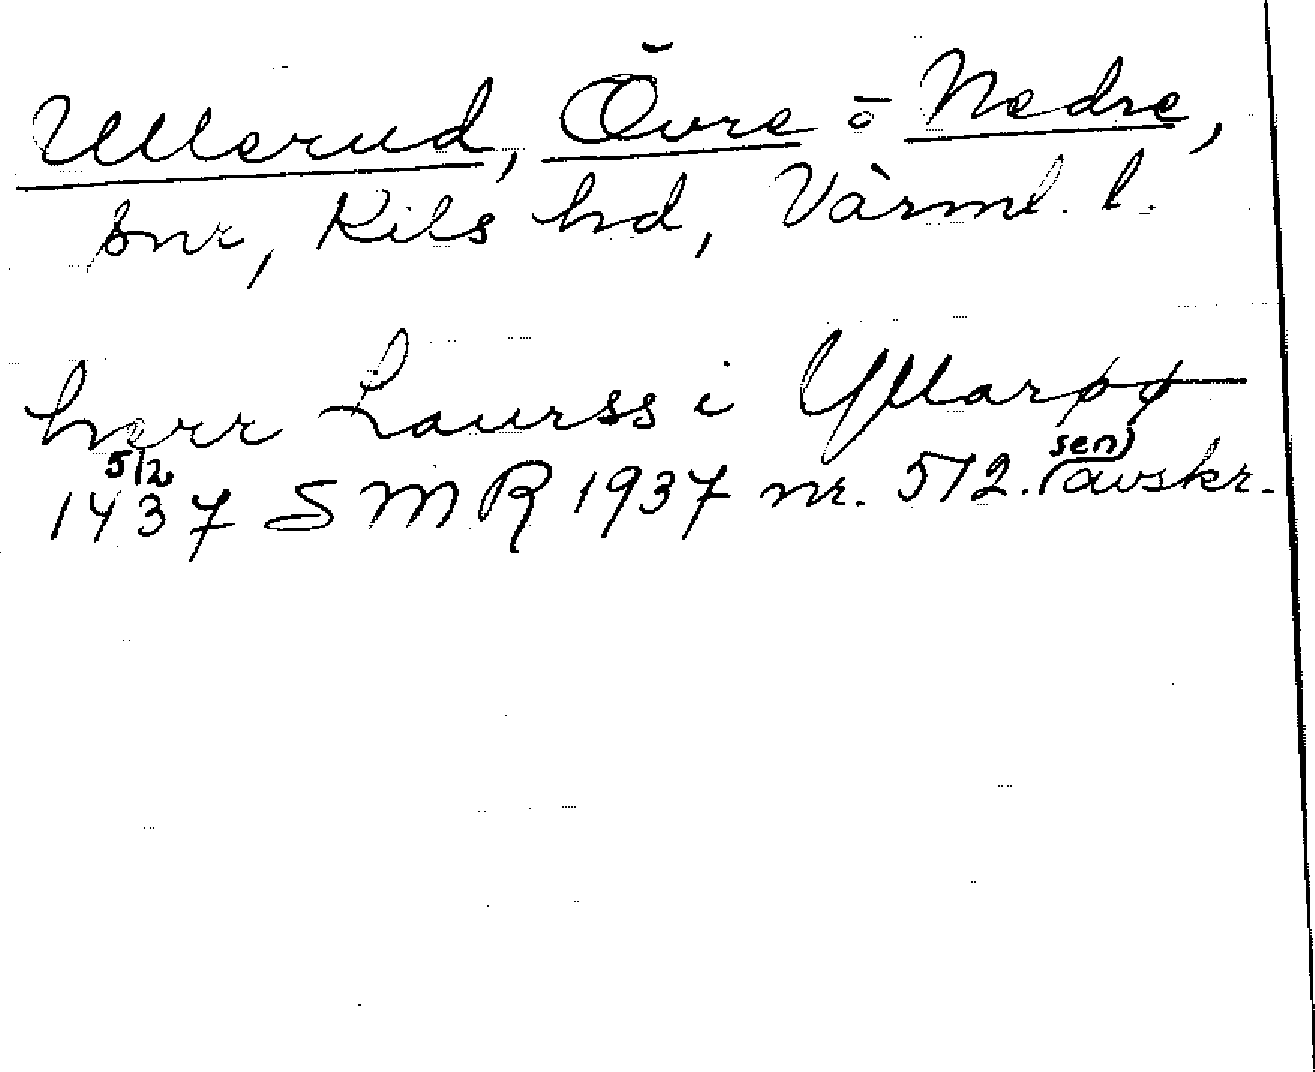 Ullerud, Övre o Nedre,
snr, Kils hd, Värml. l.
herr Laurss i Yllarpø
5/2
1437 SMR 1937 nr. 572. (sen) avskr.